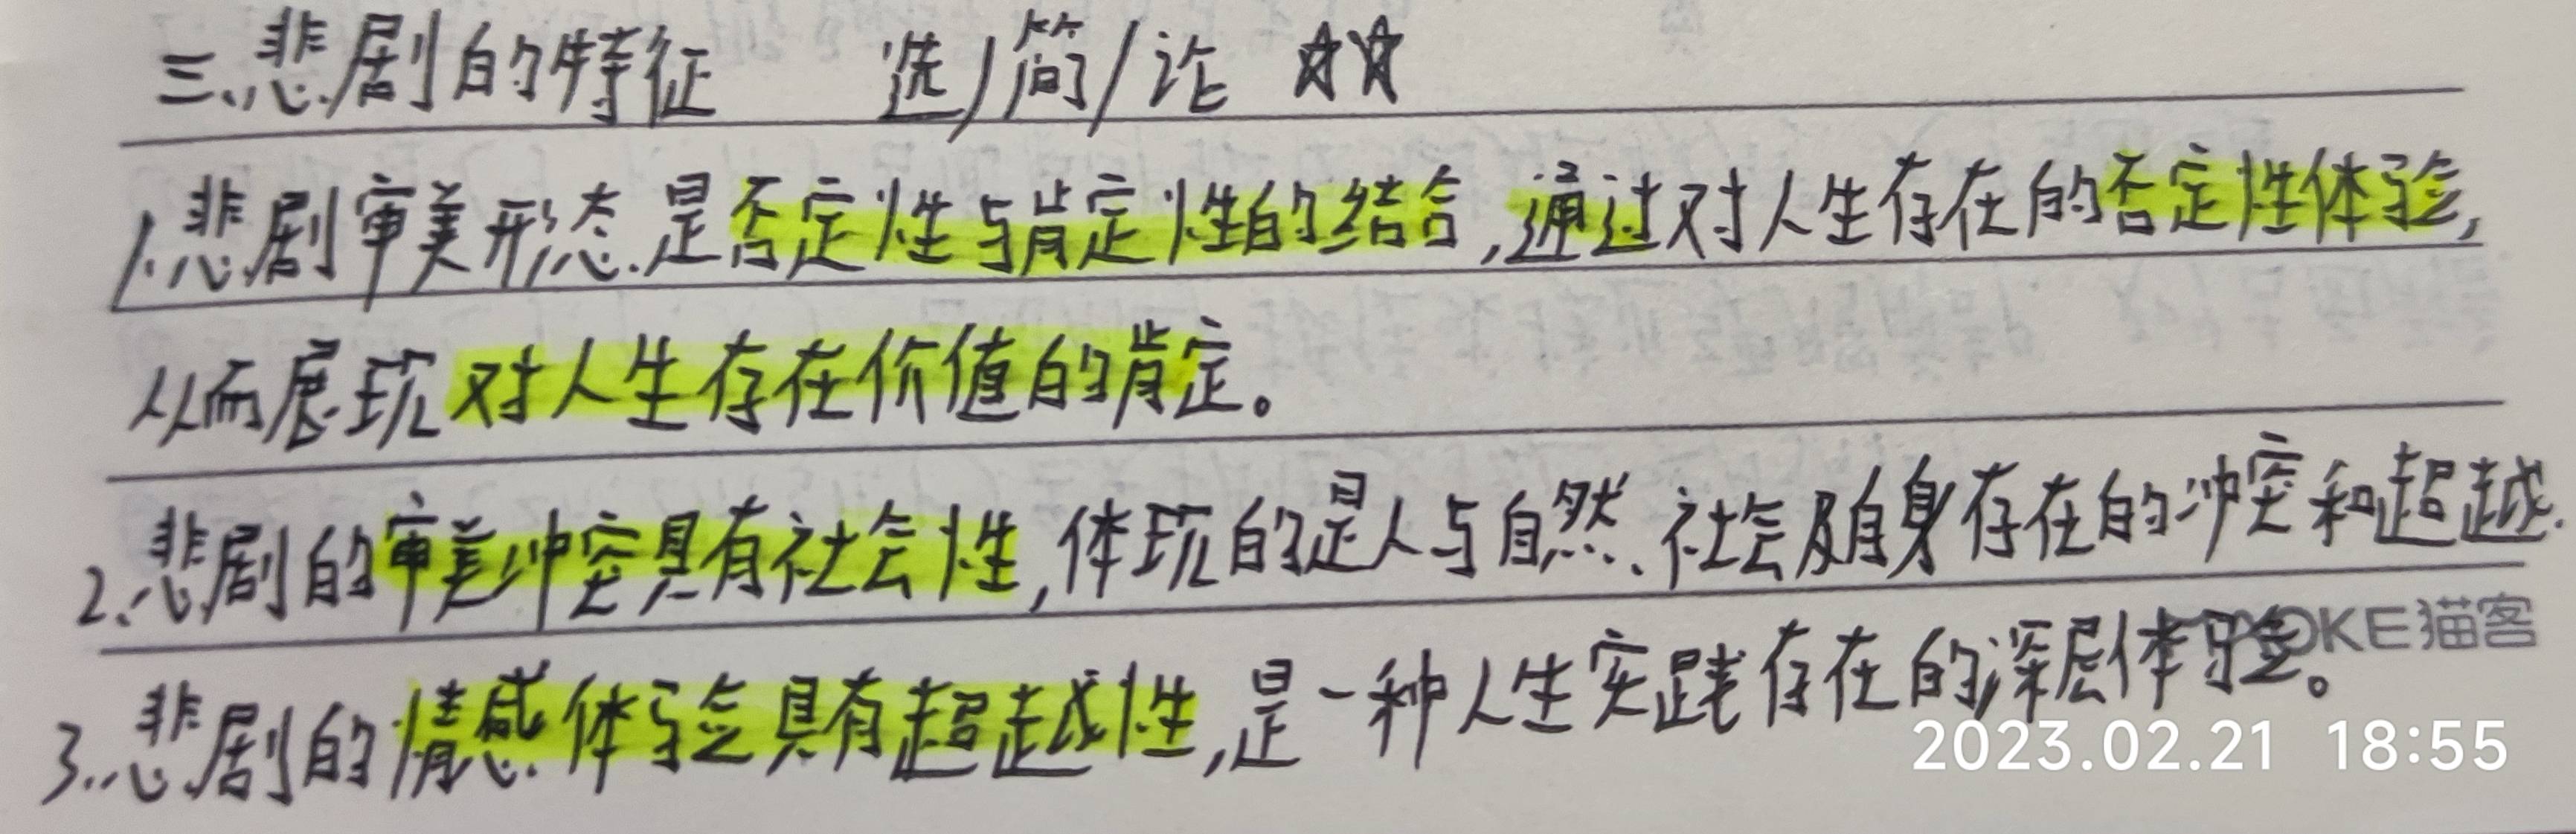 三、悲剧的特征 选/简/论 ☆☆
1.悲剧审美形态是否定性与肯定性的结合,通过对人生存在的否定性体验,
从而展现对人生存在价值的肯定。
2.悲剧的审美冲突具有社会性,体现的是人与自然、社会及自身存在的冲突和超越.
3.悲剧的情感体验具有超越性,是一种人生实践存在的深层体验。
OKE猫客
2023.02.21 18:55